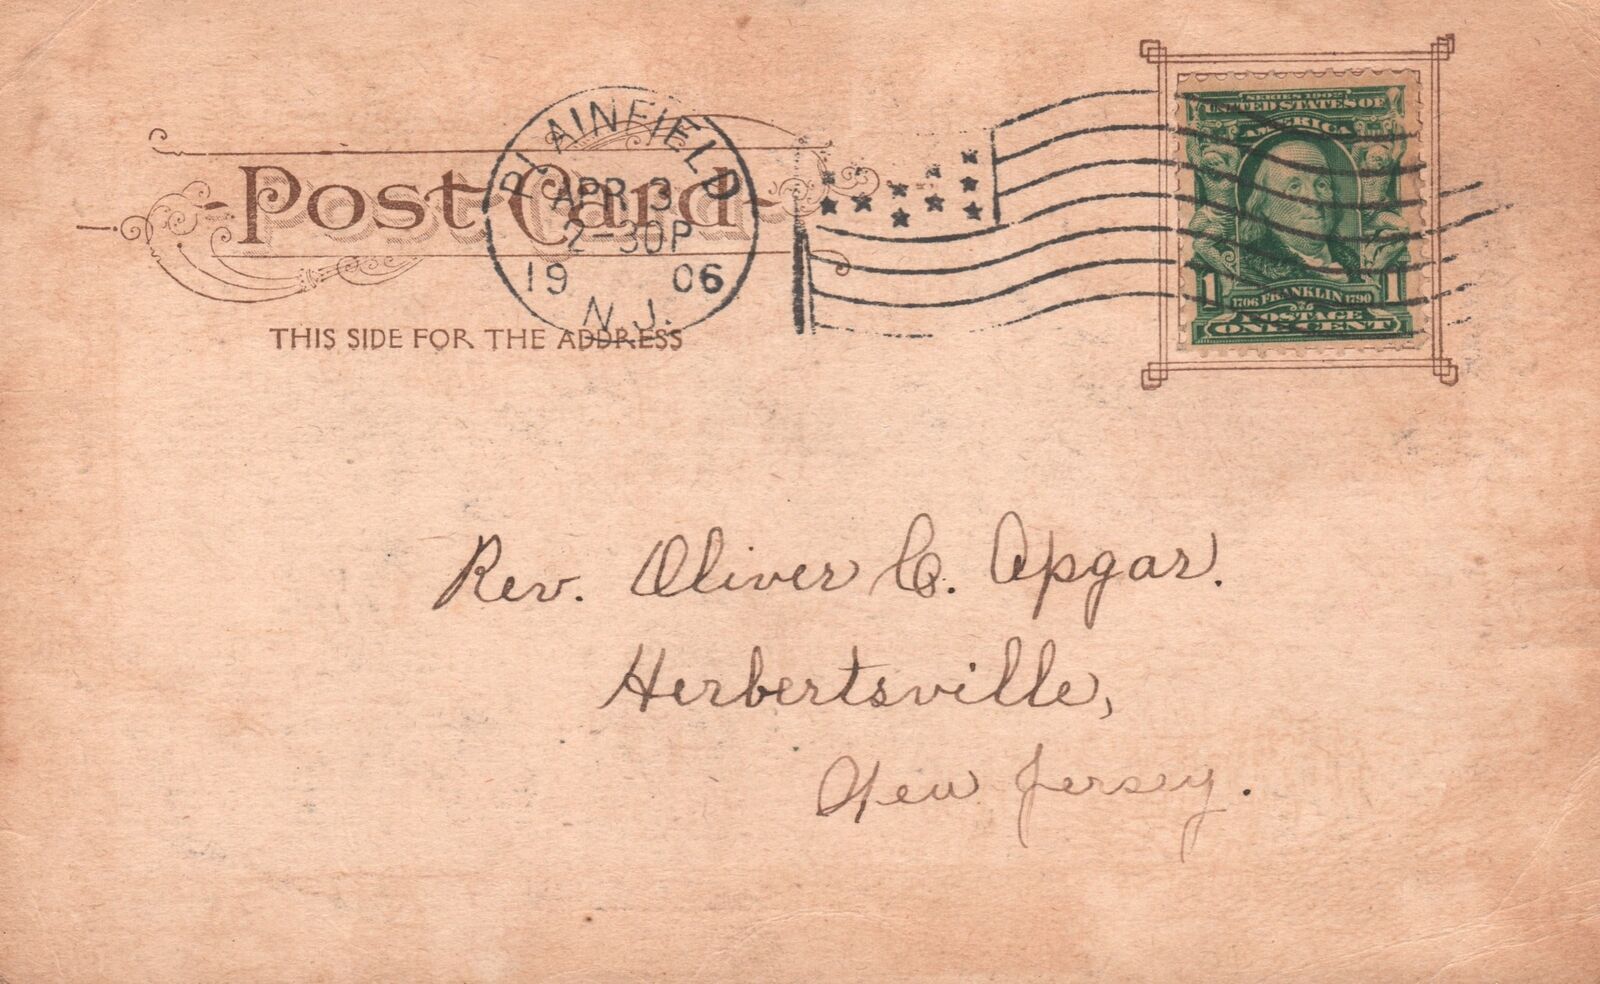 PLAINFIELD
APR 3
2-30P
1906
N.J.
Post Card
THIS SIDE FOR THE ADDRESS
SERIES 1902
UNITED STATES OF
AMERICA
1 1
1706 FRANKLIN 1790
POSTAGE
ONE CENT
Rev. Oliver C. Apgar.
Herbertsville,
New Jersey.